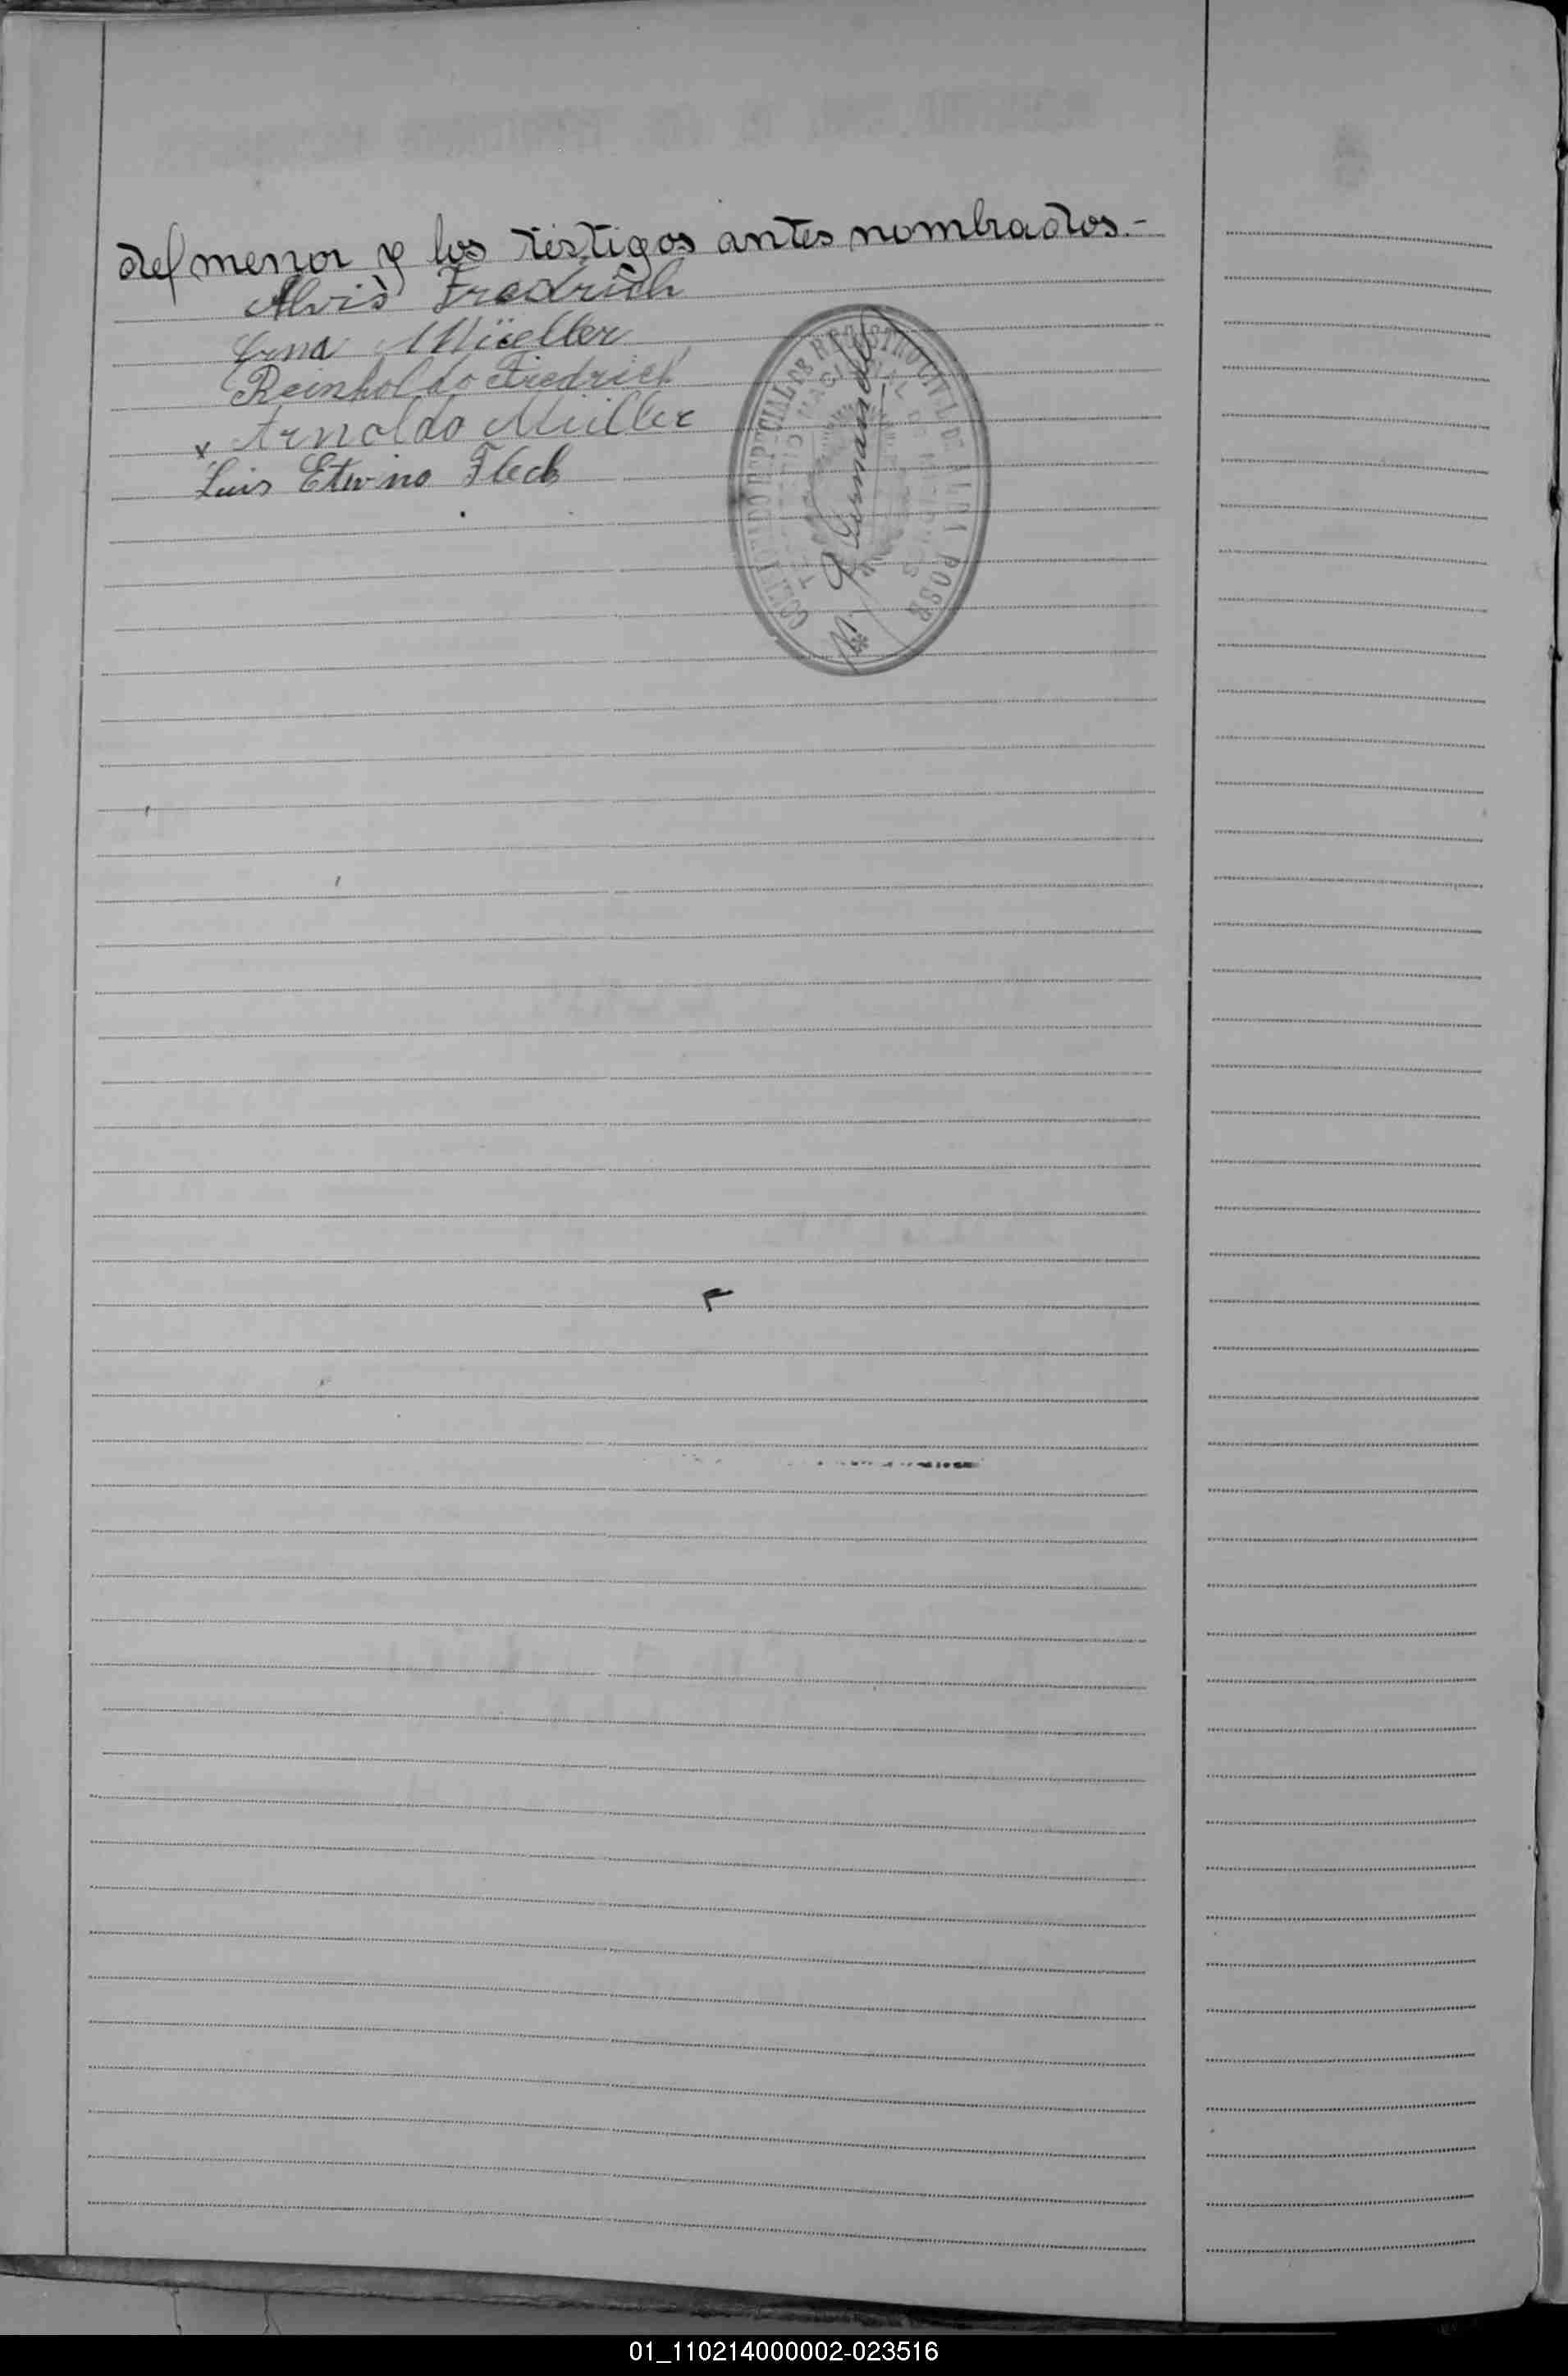 del menor y los testigos antes nombrados.-
Alvis Fredrich
Erna Müeller
Reinholdo Friedrich
x Arnoldo Müller
Luis Etwino Fleck
REGISTRO CIVIL DE
01_110214000002-023516